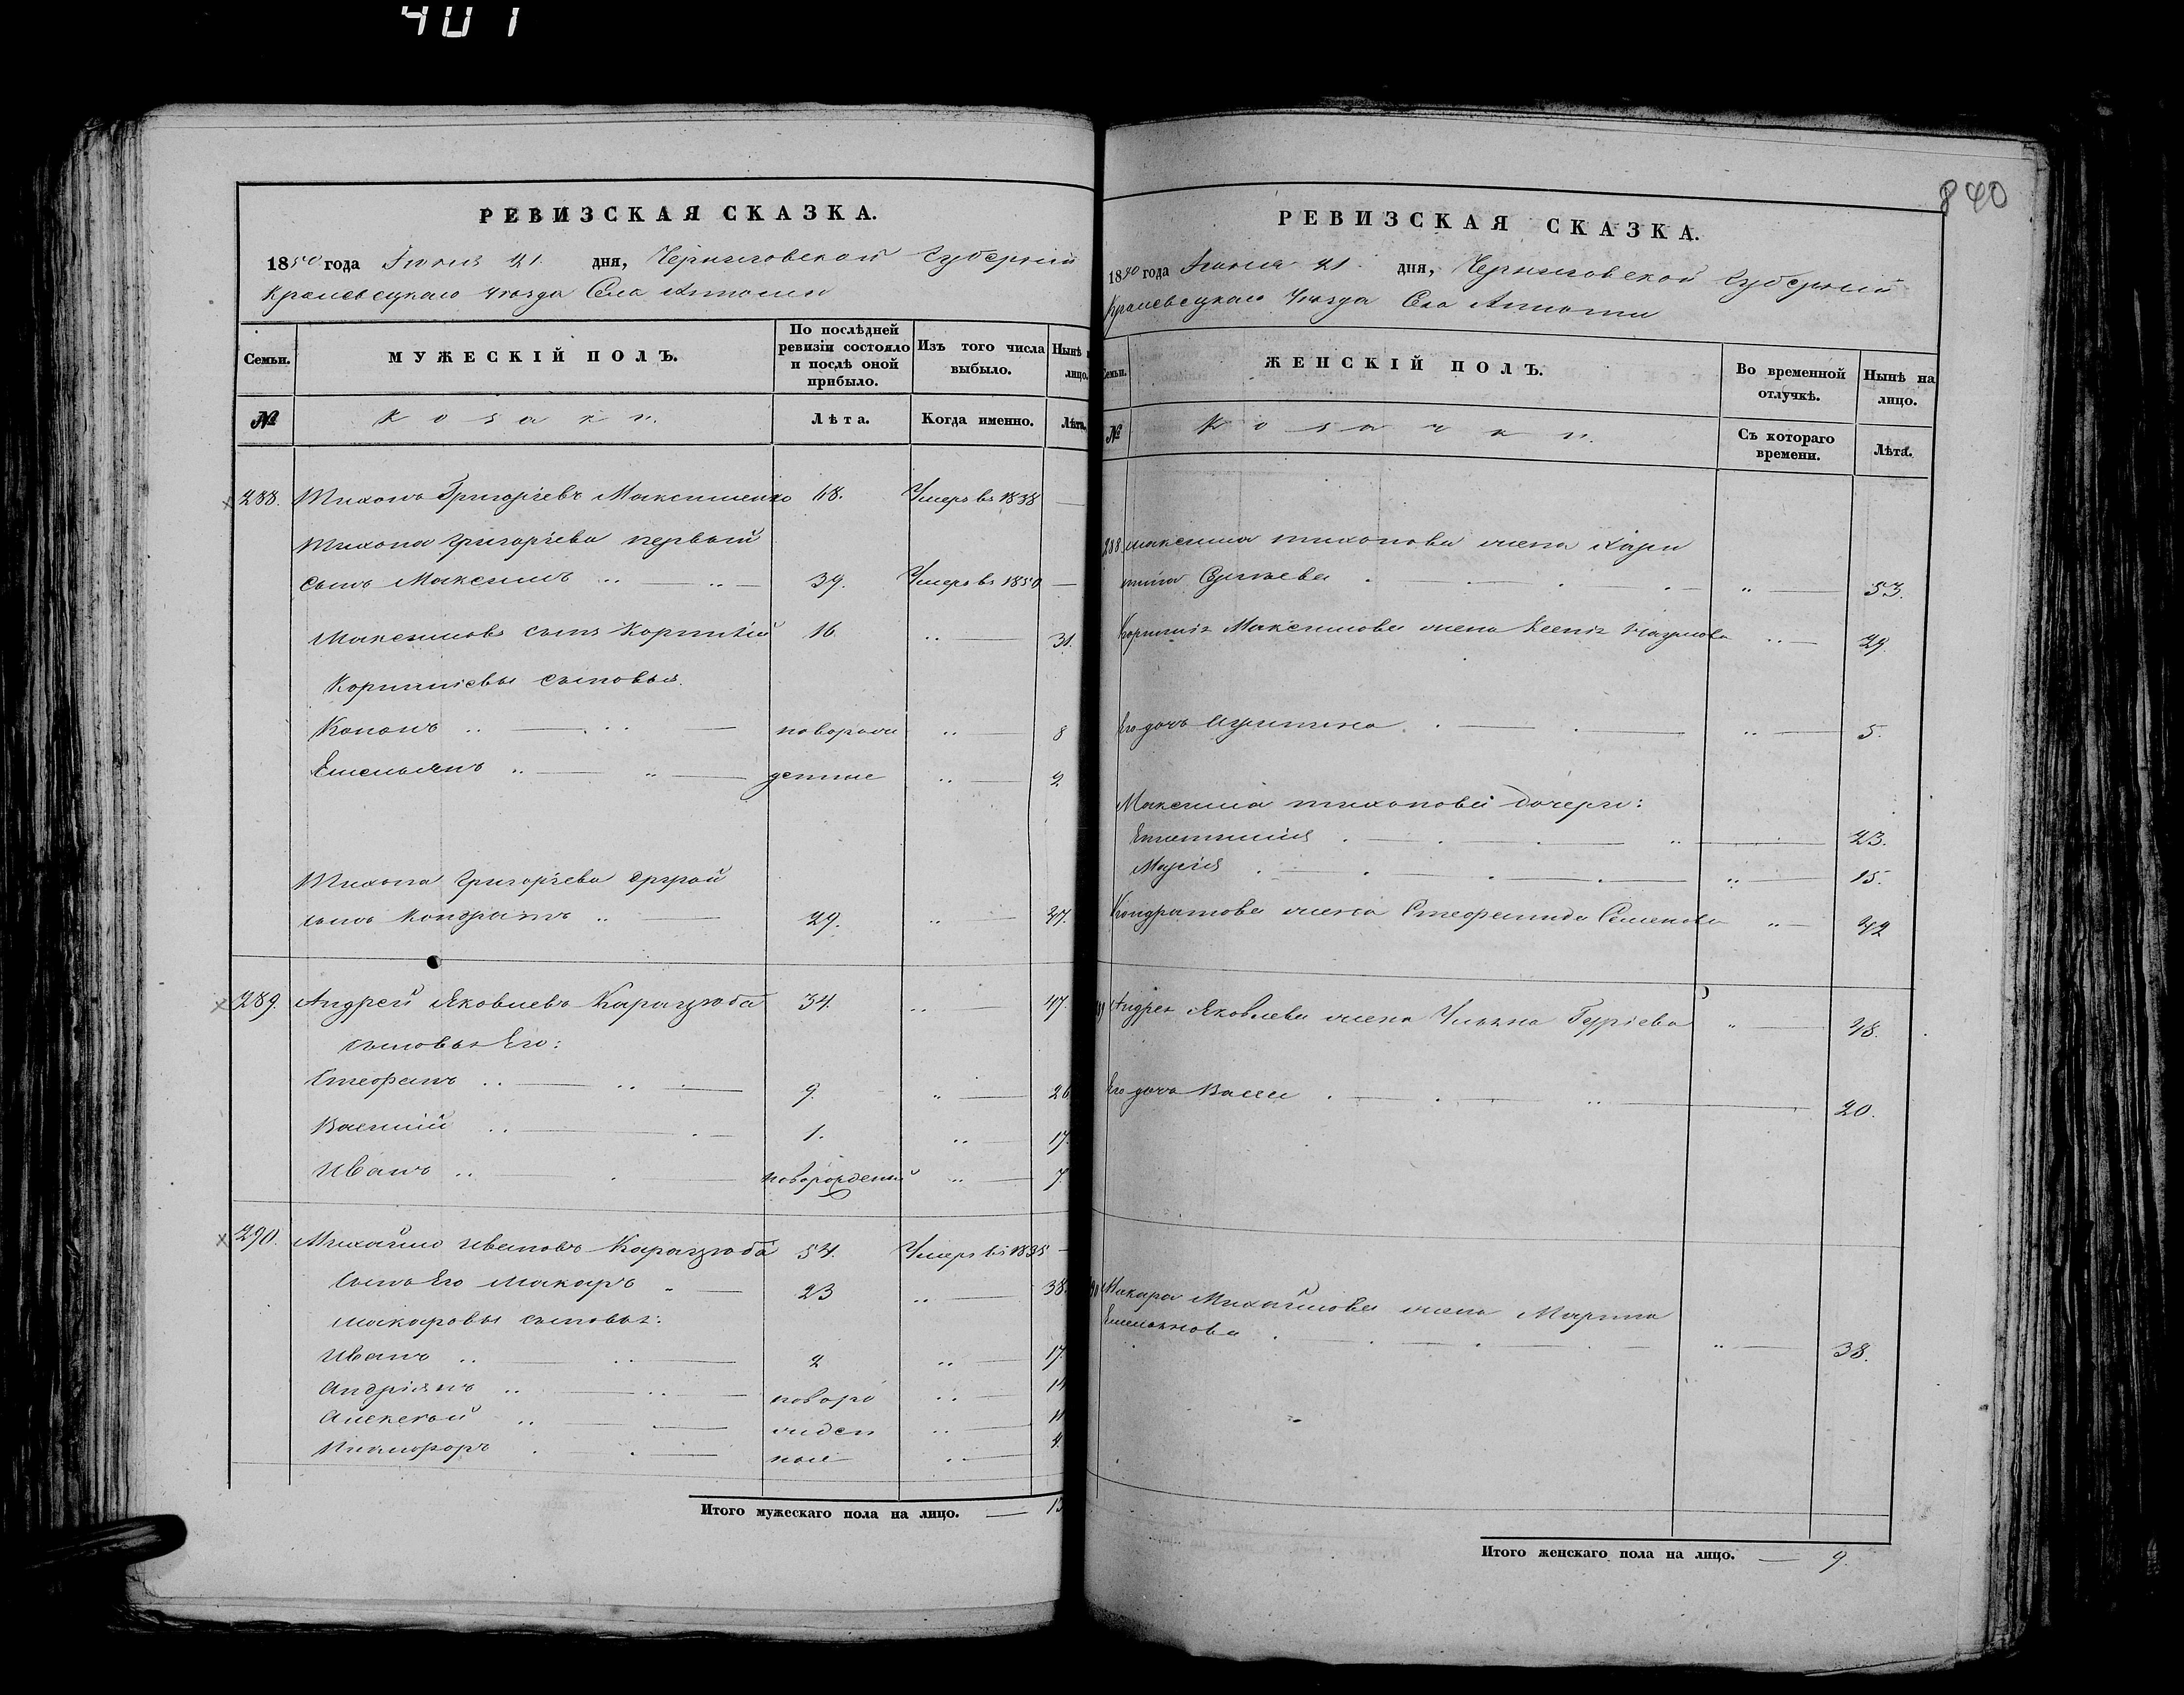 401
РЕВИЗСКАЯ СКАЗКА.
1850 года Іюня 21. дня, Черниговской Губерніи
Кролевецкаго Уѣзда Села
Семьи.
МУЖЕСКІЙ ПОЛЪ.
По послѣдней ревизіи состояло и послѣ оной прибыло.
Изъ того числа выбыло.
Нынѣ лицо.
№
Козаки.
Лѣта.
Когда именно.
Лѣта.
288. Тихонъ Григоріевъ Максименко 68. Умеръ въ 1838 —
Тихона Григоріева первый
сынъ Максимъ 39. Умеръ въ 1850 —
Максимовъ сынъ Корнилій 16 31.
Корниліевы сыновья.
Кононъ новорож 8
Емельянъ денные 2
Тихона Григоріева другой
сынъ Кондратъ 29. 47.
289. Андрей Яковлевъ 34. 47.
сыновья Его:
Стефанъ 9. 26
Василій 1. 17.
Иванъ новорожденный 7
290. Михайло Ивановъ 54. Умеръ въ 1835 —
Сынъ Его Макаръ 23 38.
Макаровы сыновья:
Иванъ 2 17.
Андріянъ новоро 14
Алексѣй жден 11
Никифоръ ные 4.
Итого мужескаго пола на лицо. — 13
840
РЕВИЗСКАЯ СКАЗКА.
1850 года Іюня 21. дня, Черниговской Губерніи
Кролевецкаго Уѣзда Села
Семьи.
ЖЕНСКІЙ ПОЛЪ.
Во временной отлучкѣ.
Нынѣ на лицо.
№
Козачки.
Съ котораго времени.
Лѣта.
288 Максима Тихонова жена Хари
тина Сергѣева 53.
Корнилія Максимова жена 29.
Его дочь 5.
Максима Тихонова дочери:
23.
Марія 15.
Кондратова жена Стефанида Семенова 42
Андрея Яковлева жена Ульяна Гуріева 48.
Его дочь Васса 20.
Макара Михайлова жена Марина
Емельянова 38.
Итого женскаго пола на лицо. — 9.